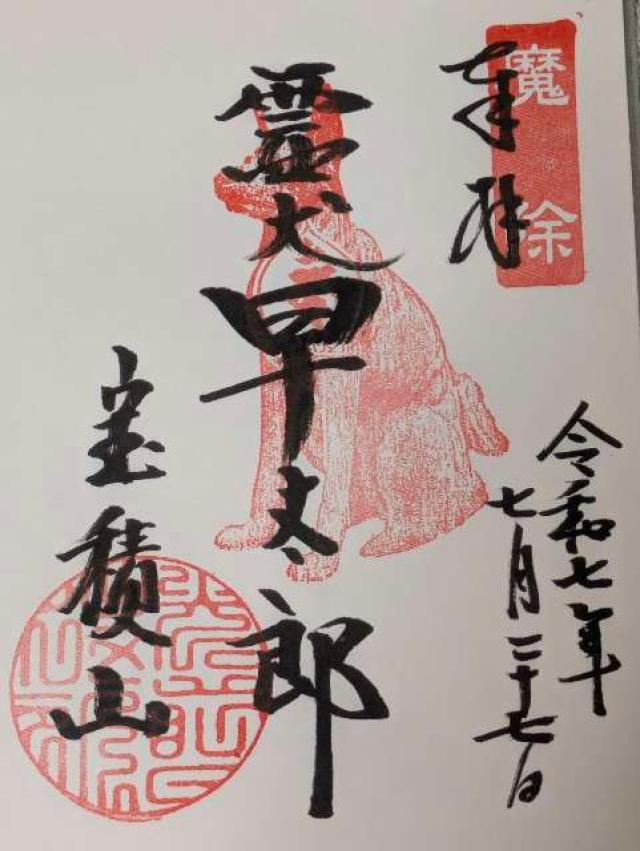 魔除
奉拝
令和七年
七月二十七日
霊犬早太郎
宝積山